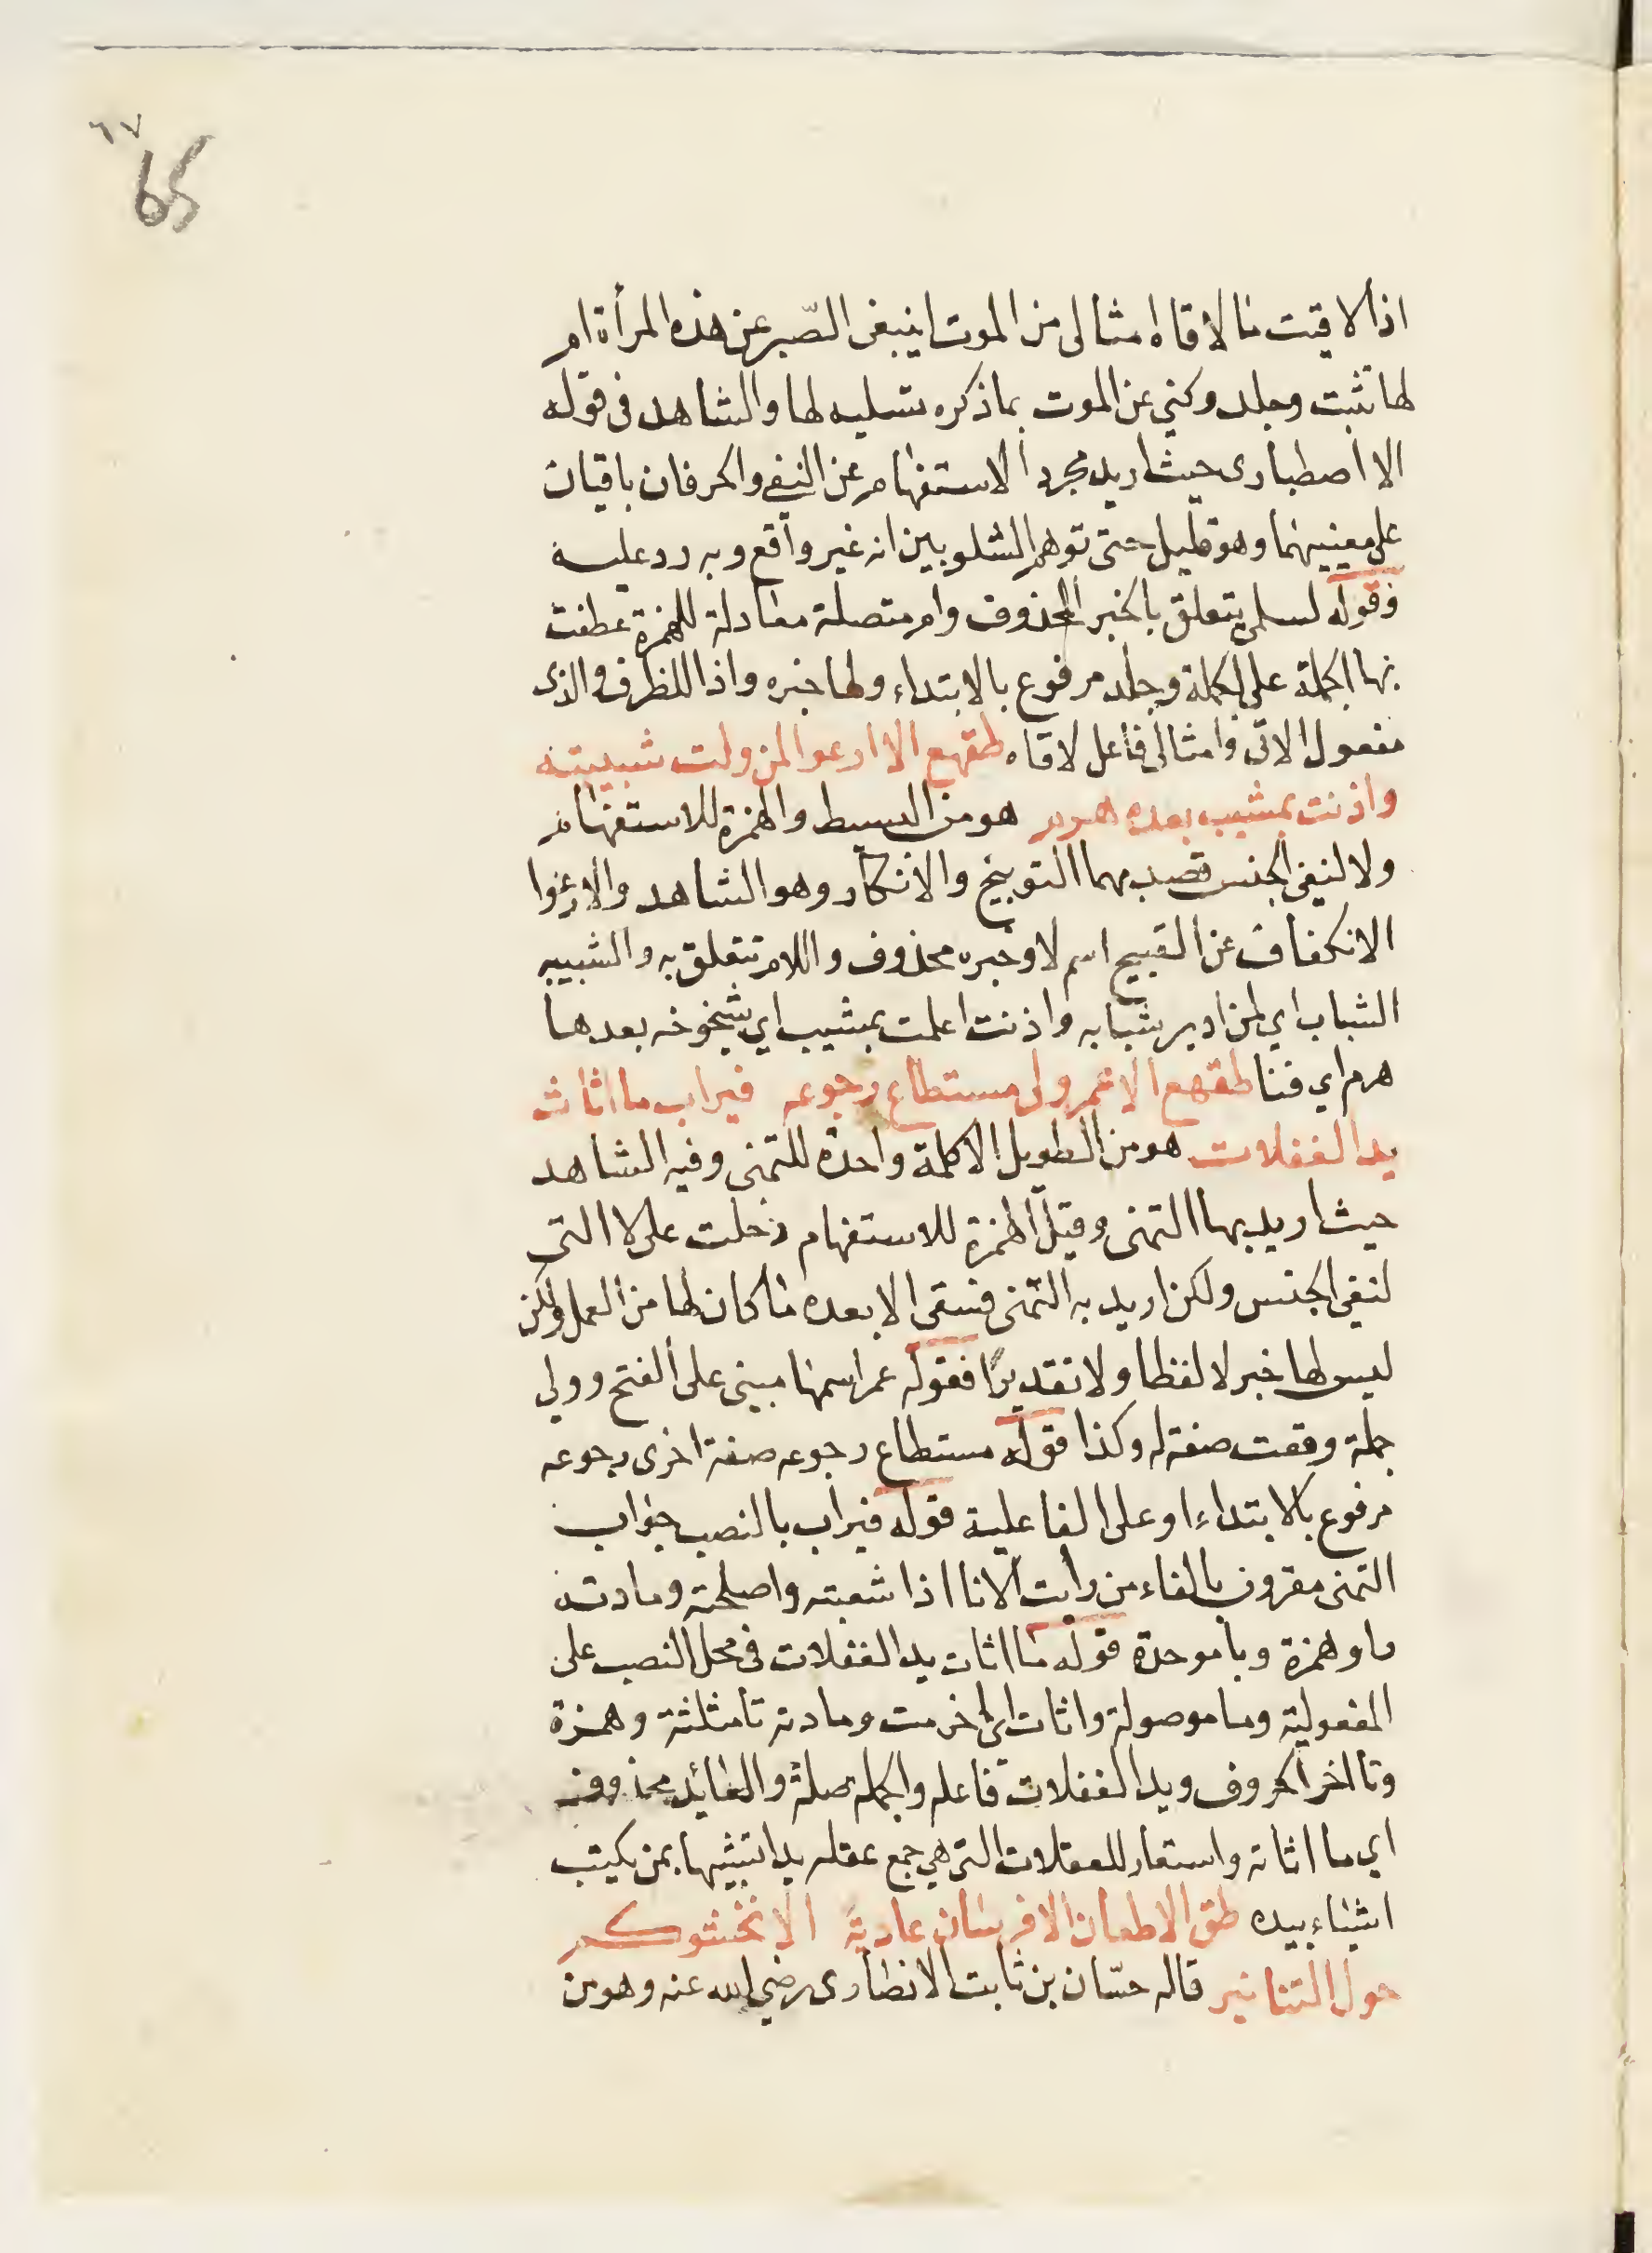 ٦٧
65
اذا لاقيت ما لاقاه امثالى من الموت اينبغى الصّبر عن هذه المرأة ام
لها تثبت وجلد وكني عن الموت بما ذكره تسليه لها والشاهد فى قوله
الا اصطبارى حيث اريد مجرد الاستفهام عن النفي والحرفان باقيان
على معنييهما وهو قليل حتى توهم الشلوبين انه غير واقع وبه رد عليه
وقوله لسلمى يتعلق بالخبر المحذوف وام متصلة معادلة للهمزة عطفت
بها الجملة على الجملة وجلد مرفوع بالابتداء ولها خبره واذا للظرف والذى
مفعول الاقى وامثالى فاعل لاقاه طقهع الا ارعوا لمن ولت شبيبته
واذنت بمشيب بعده هرم هو من البسيط والهمزة للاستفهام
ولا لنفى الجنس قصد بهما التوبيخ والانكار وهو الشاهد والارعوا
الانكفاف عن القبيح اسم لا وخبره محذوف واللام تتعلق به والشبيبه
الشباب اي لمن ادبر شبابه واذنت اعلمت بمشيب اي شيخوخه بعدها
هرم اي فنا طقهع الا عمر ولى مستطاع رجوعه فيراب ما اثات
يد الغفلات هو من الطويل الا كلمة واحدة للتمنى وفيه الشاهد
حيث اريد بها التمنى وقيل الهمزة للاستفهام دخلت على لا التى
لنفى الجنس ولكن اريد به التمنى فبقى الا بعده ما كان لها من العمل ولكن
ليس لها خبر لا لفظا ولا تقديرًا فقوله عمر اسمها مبنى على الفتح وولي
جملة وقعت صفة له وكذا قوله مستطاع رجوعه صفة اخرى رجوعه
مرفوع بالابتداء او على الفاعلية قوله فيراب بالنصب جواب
التمنى مقرون بالفاء من رأبت الانا اذا شعبته واصلحته ومادته
راو همزة وبا موحدة قوله ما اثات يد الغفلات فى محل النصب على
المفعولية وما موصولة واثات اى اخرمت ومادته ثا مثلثة وهمزة
وتا اخر الحروف ويد الغفلات فاعله والجمله صلة والعائد محذوف
اي ما اثاته واستعار للغفلات التى هي جمع غفله يدا تشبيها بمن يكتب
اشياء بيده طق الا طعان الا فرسان عاديةً الا تجشئوكم
حول التنانير قاله حسّان بن ثابت الانصارى رضي الله عنه وهو من